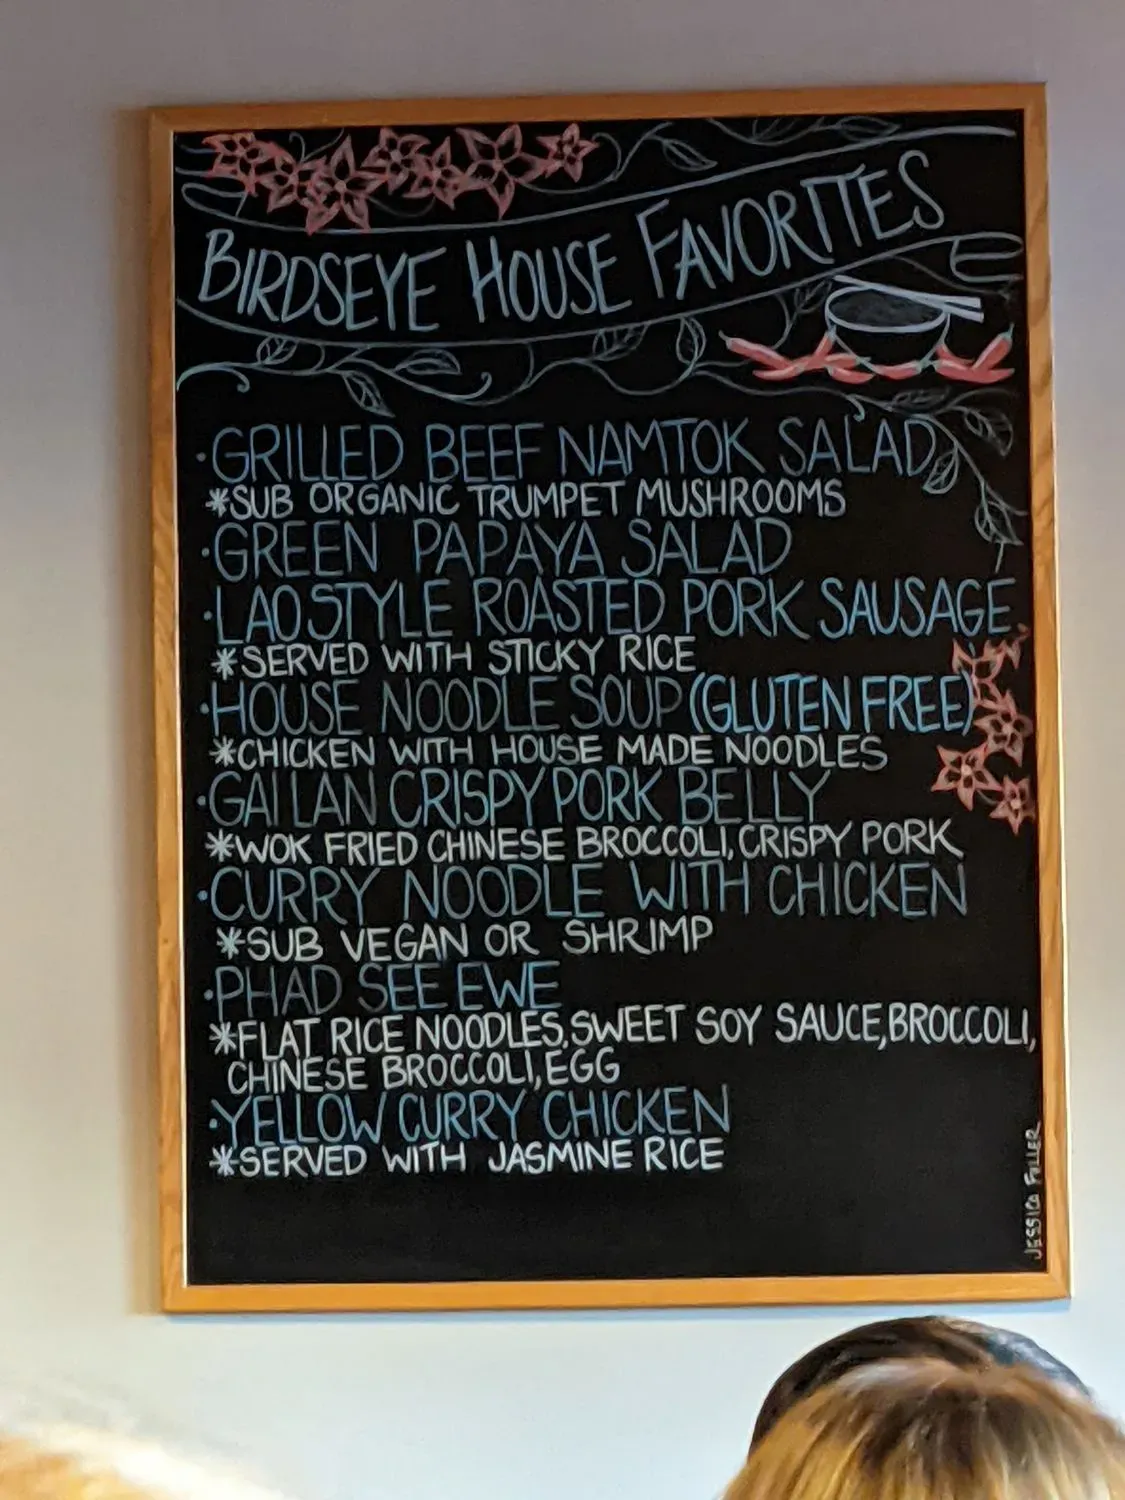 BIRDSEYE HOUSE FAVORITES
·GRILLED BEEF NAMTOK SALAD
*SUB ORGANIC TRUMPET MUSHROOMS
·GREEN PAPAYA SALAD
·LAO STYLE ROASTED PORK SAUSAGE
*SERVED WITH STICKY RICE
·HOUSE NOODLE SOUP (GLUTEN FREE)
*CHICKEN WITH HOUSE MADE NOODLES
·GAI LAN CRISPY PORK BELLY
*WOK FRIED CHINESE BROCCOLI, CRISPY PORK
·CURRY NOODLE WITH CHICKEN
*SUB VEGAN OR SHRIMP
·PHAD SEE EWE
*FLAT RICE NOODLES, SWEET SOY SAUCE, BROCCOLI,
CHINESE BROCCOLI, EGG
·YELLOW CURRY CHICKEN
*SERVED WITH JASMINE RICE
JESSICA FULLER